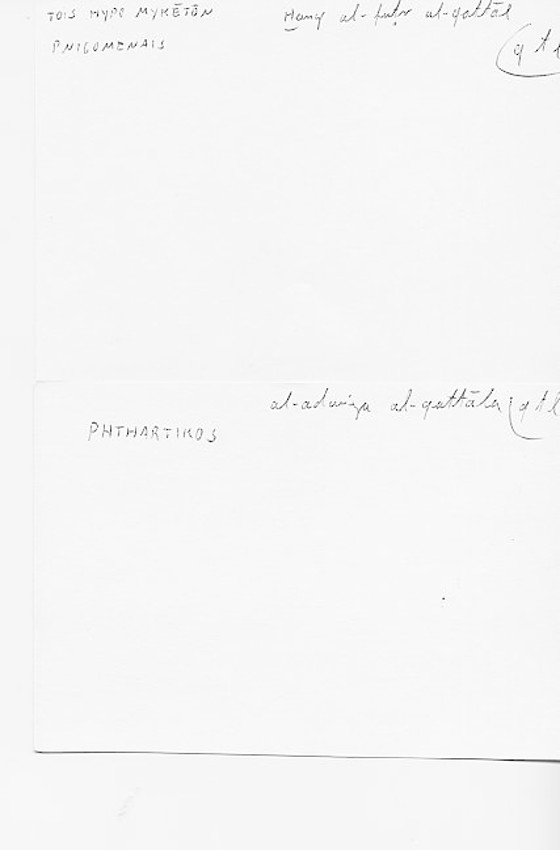 TOIS HYPO MYKĒTŌN ḫanq al-fuṭr al-qattāl
PNIGOMENAIS q t l
al-adwiya al-qattāla q t l
PHTHARTIKOS